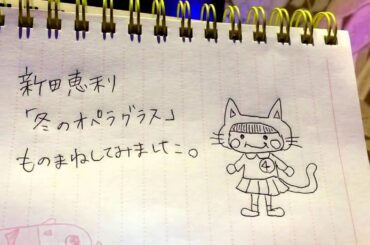 新田恵利
「冬のオペラグラス」
ものまねしてみました。
4